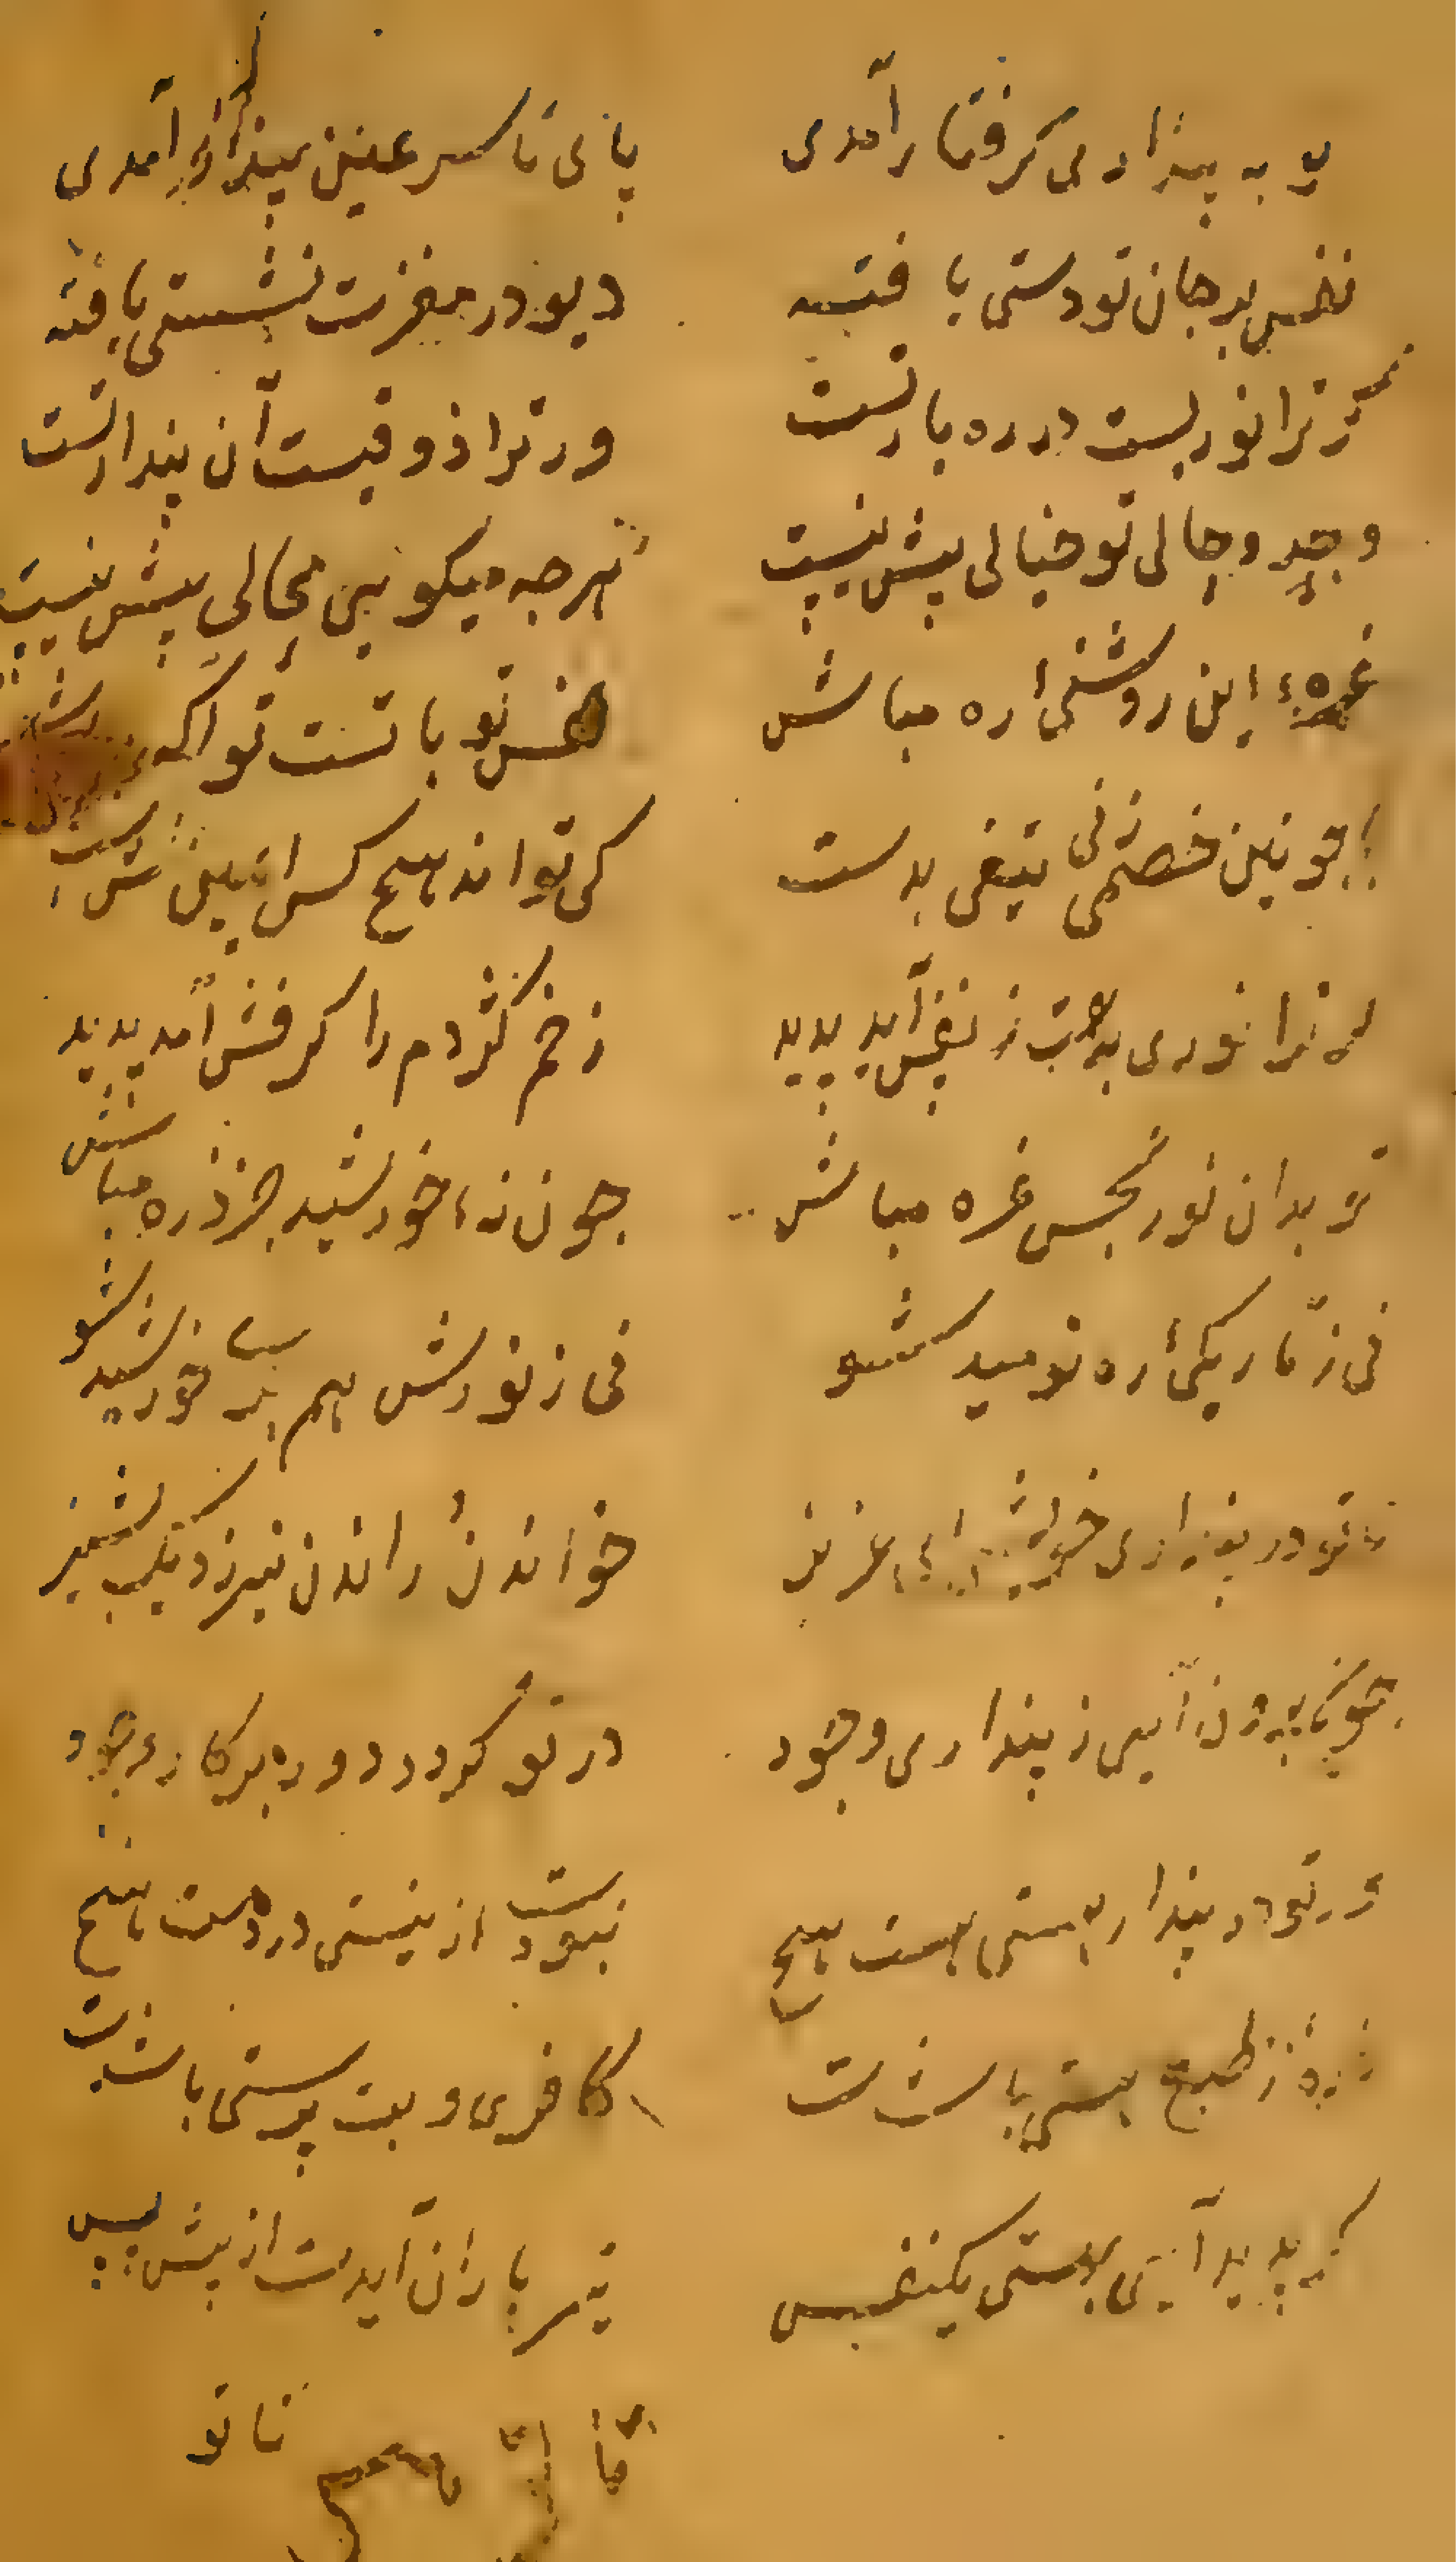 تو به پنداری گرفتار آمدی پای تا سر عین پندار آمدی
نفس بر جان تو دستی یافته دیو در مغزت نشستی یافته
گر ترا نوریست در ره یار تست ور ترا ذوقیست آن پندار تست
وجد و حالی تو خیالی بیش نیست هرچه میکویی محالی بیش نیست
غرهٔ این روشنی ره مباش نفس تو با تست تو آکه مباش
با جونین خصمی تیغی بدست کی تواند هیچ کس ایمن نشست
کر ترا نوری ز نفس آید پدید زخم کژدم را کرفش آمد پدید
تو بدان نور نجس غره مباش جون نهٔ خورشید جز ذره مباش
نی ز تاریکی ره نومید شو نی ز نورش هم بر خورشید شو
تا تو در پنداری خویشی ای عزیز خواندن راندن نیرزد یک پشیز
جون برون آیی ز پنداری وجود بر تو کردد دور پرکار وجود
ور تو در پندار هستی هست هیچ نبودت از نیستی در دست هیچ
ذرهٔ از طبع هستی باشدت کافری و بت پرستی باشدت
کر پدید آیی بهستی یکنفس تیر باران آیدت از پیش پس
تا تو